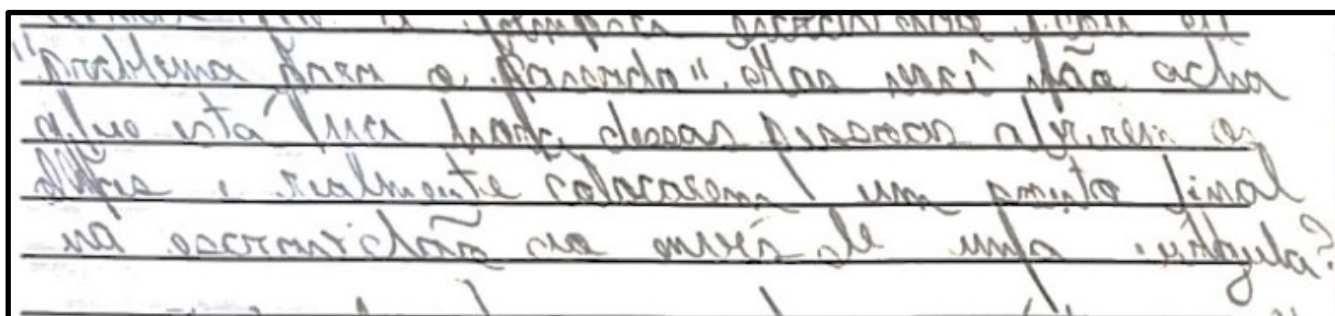 "problema para o passado". Mas você não acha
que está na hora dessas pessoas abrirem os
olhos e realmente colocarem um ponto final
na escravidão ao invés de uma vírgula?